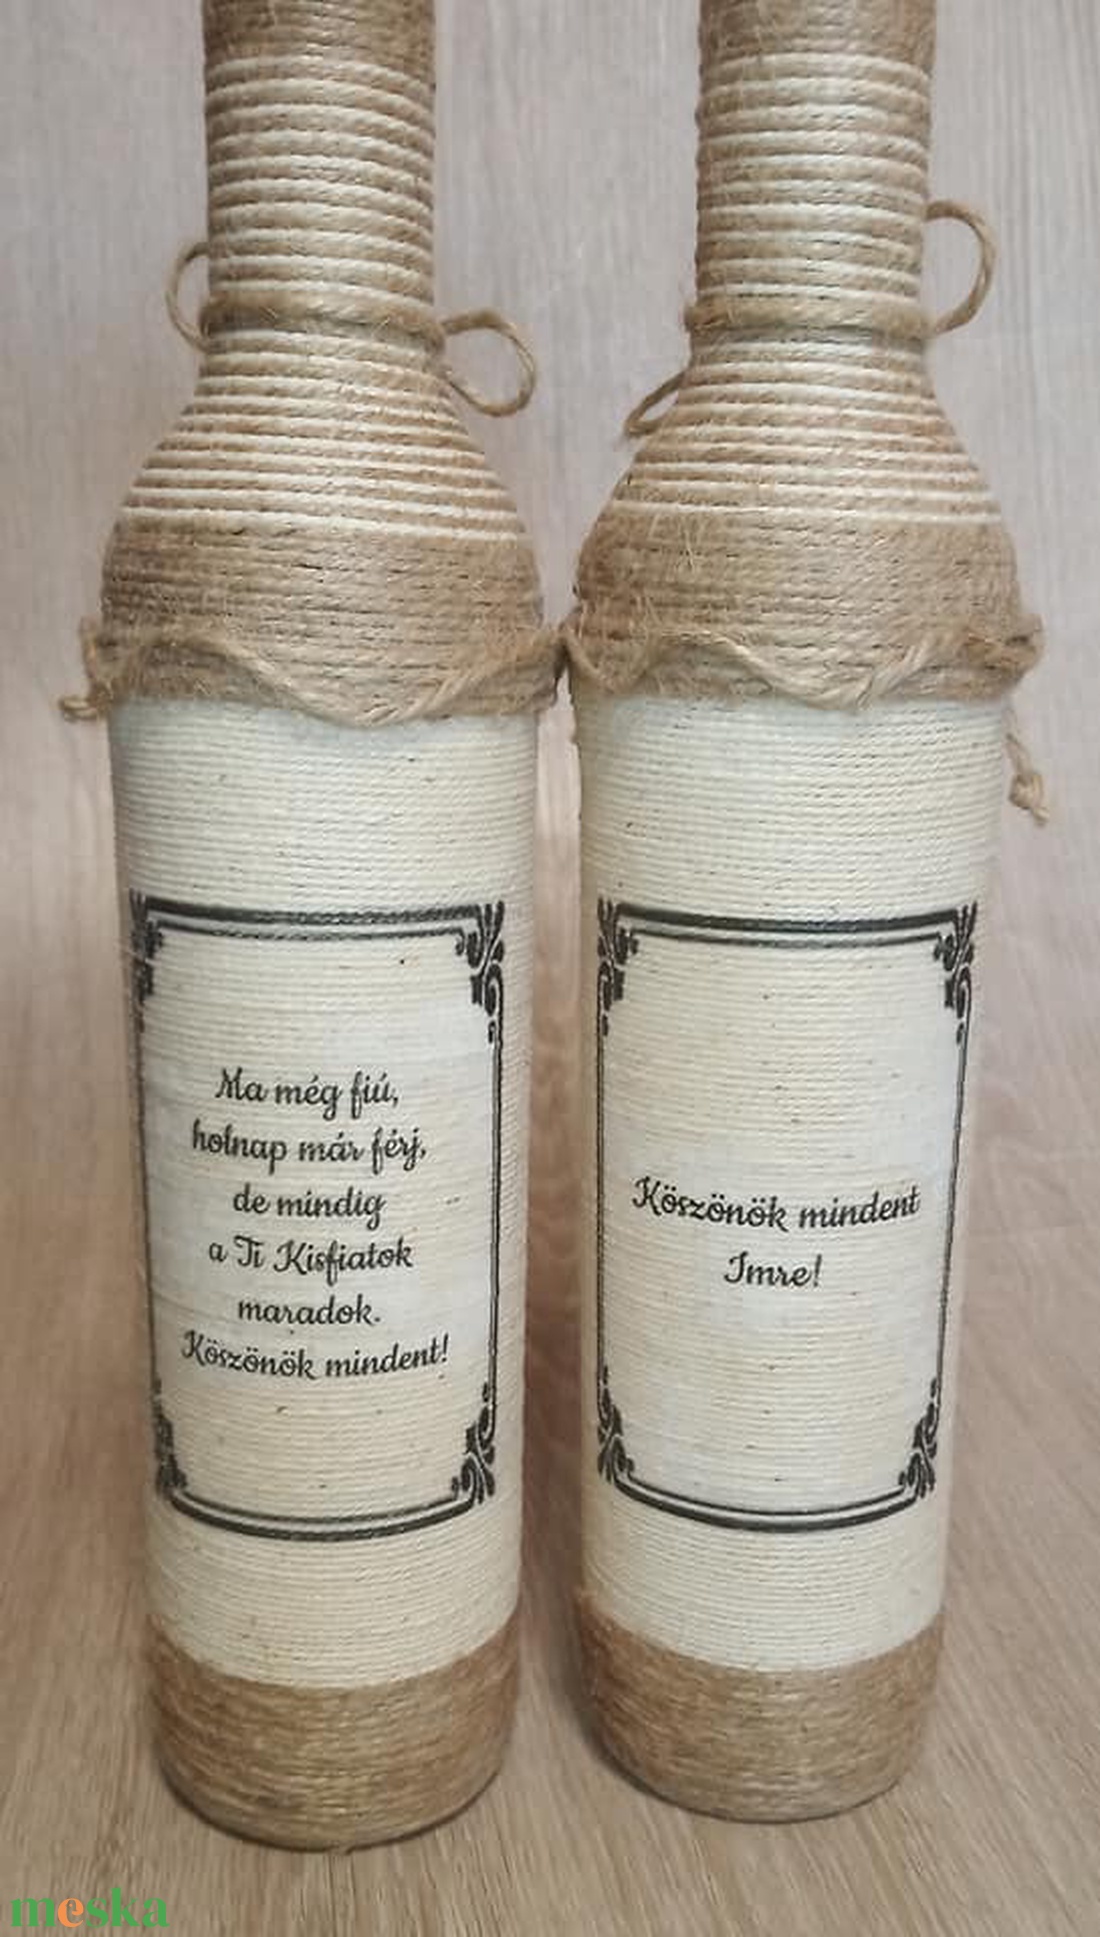 Ma még fiú,
holnap már férj,
de mindig
a Ti Kisfiatok
maradok.
Köszönök mindent!
Köszönök mindent
Imre!
meska